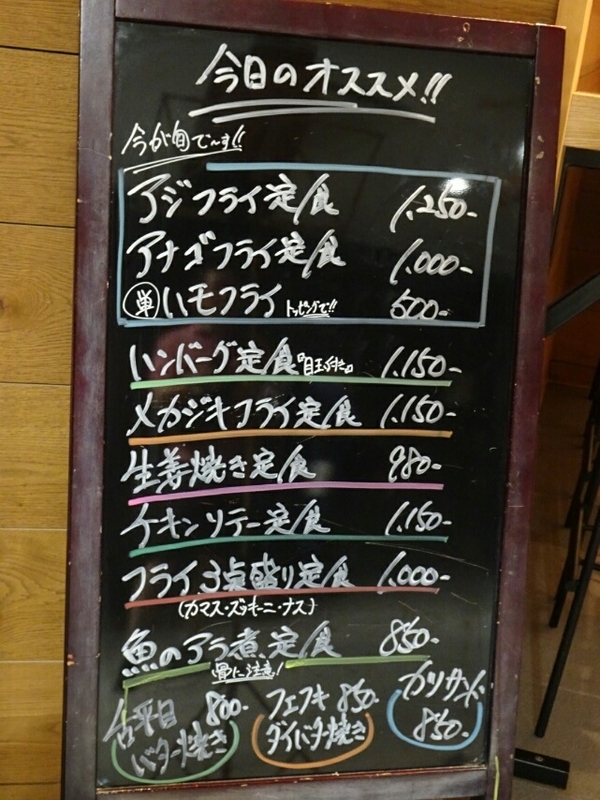 今日のオススメ!!
今が旬で〜す!!
アジフライ定食 1,250-
アナゴフライ定食 1,000-
単 ハモフライ トッピングで!! 500-
ハンバーグ定食『目玉付き』 1,150-
メカジキフライ定食 1,150-
生姜焼き定食 980-
チキンソテー定食 1,150-
フライ3点盛り定食 1,000-
(カマス・ズッキーニ・ナス)
魚のアラ煮定食 850-
骨に注意!
舌平目 800-
バター焼き
フエフキ 850-
ダイバター焼き
カツサンド
850-